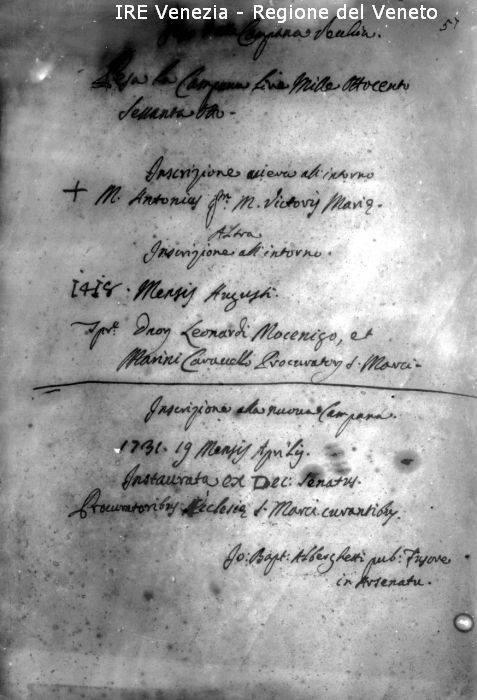 IRE Venezia - Regione del Veneto
57
Campana Vechia.
Pesa la Campana Lire Mille Ottocento
Sessanta Otto -
Inscrizione aveva all'intorno
+ M. Antonius fr. M. Victoris Mariæ.
Altra
Inscrizione all'intorno.
1418. Mensis Augusti.
Tpr̃e Dnoȝ Leonardi Mocenigo, et
Marini Caravello Procuratoȝ S. Marci -
Inscrizione alla nuova Campana.
1731. 19 Mensis Aprilis.
Instaurata ex Dec: Senatus.
Procuratoribus Ecclesiæ S. Marci curantibus.
Jo: Bapt: Alberghetti pub: Fusore
in Arsenatu.